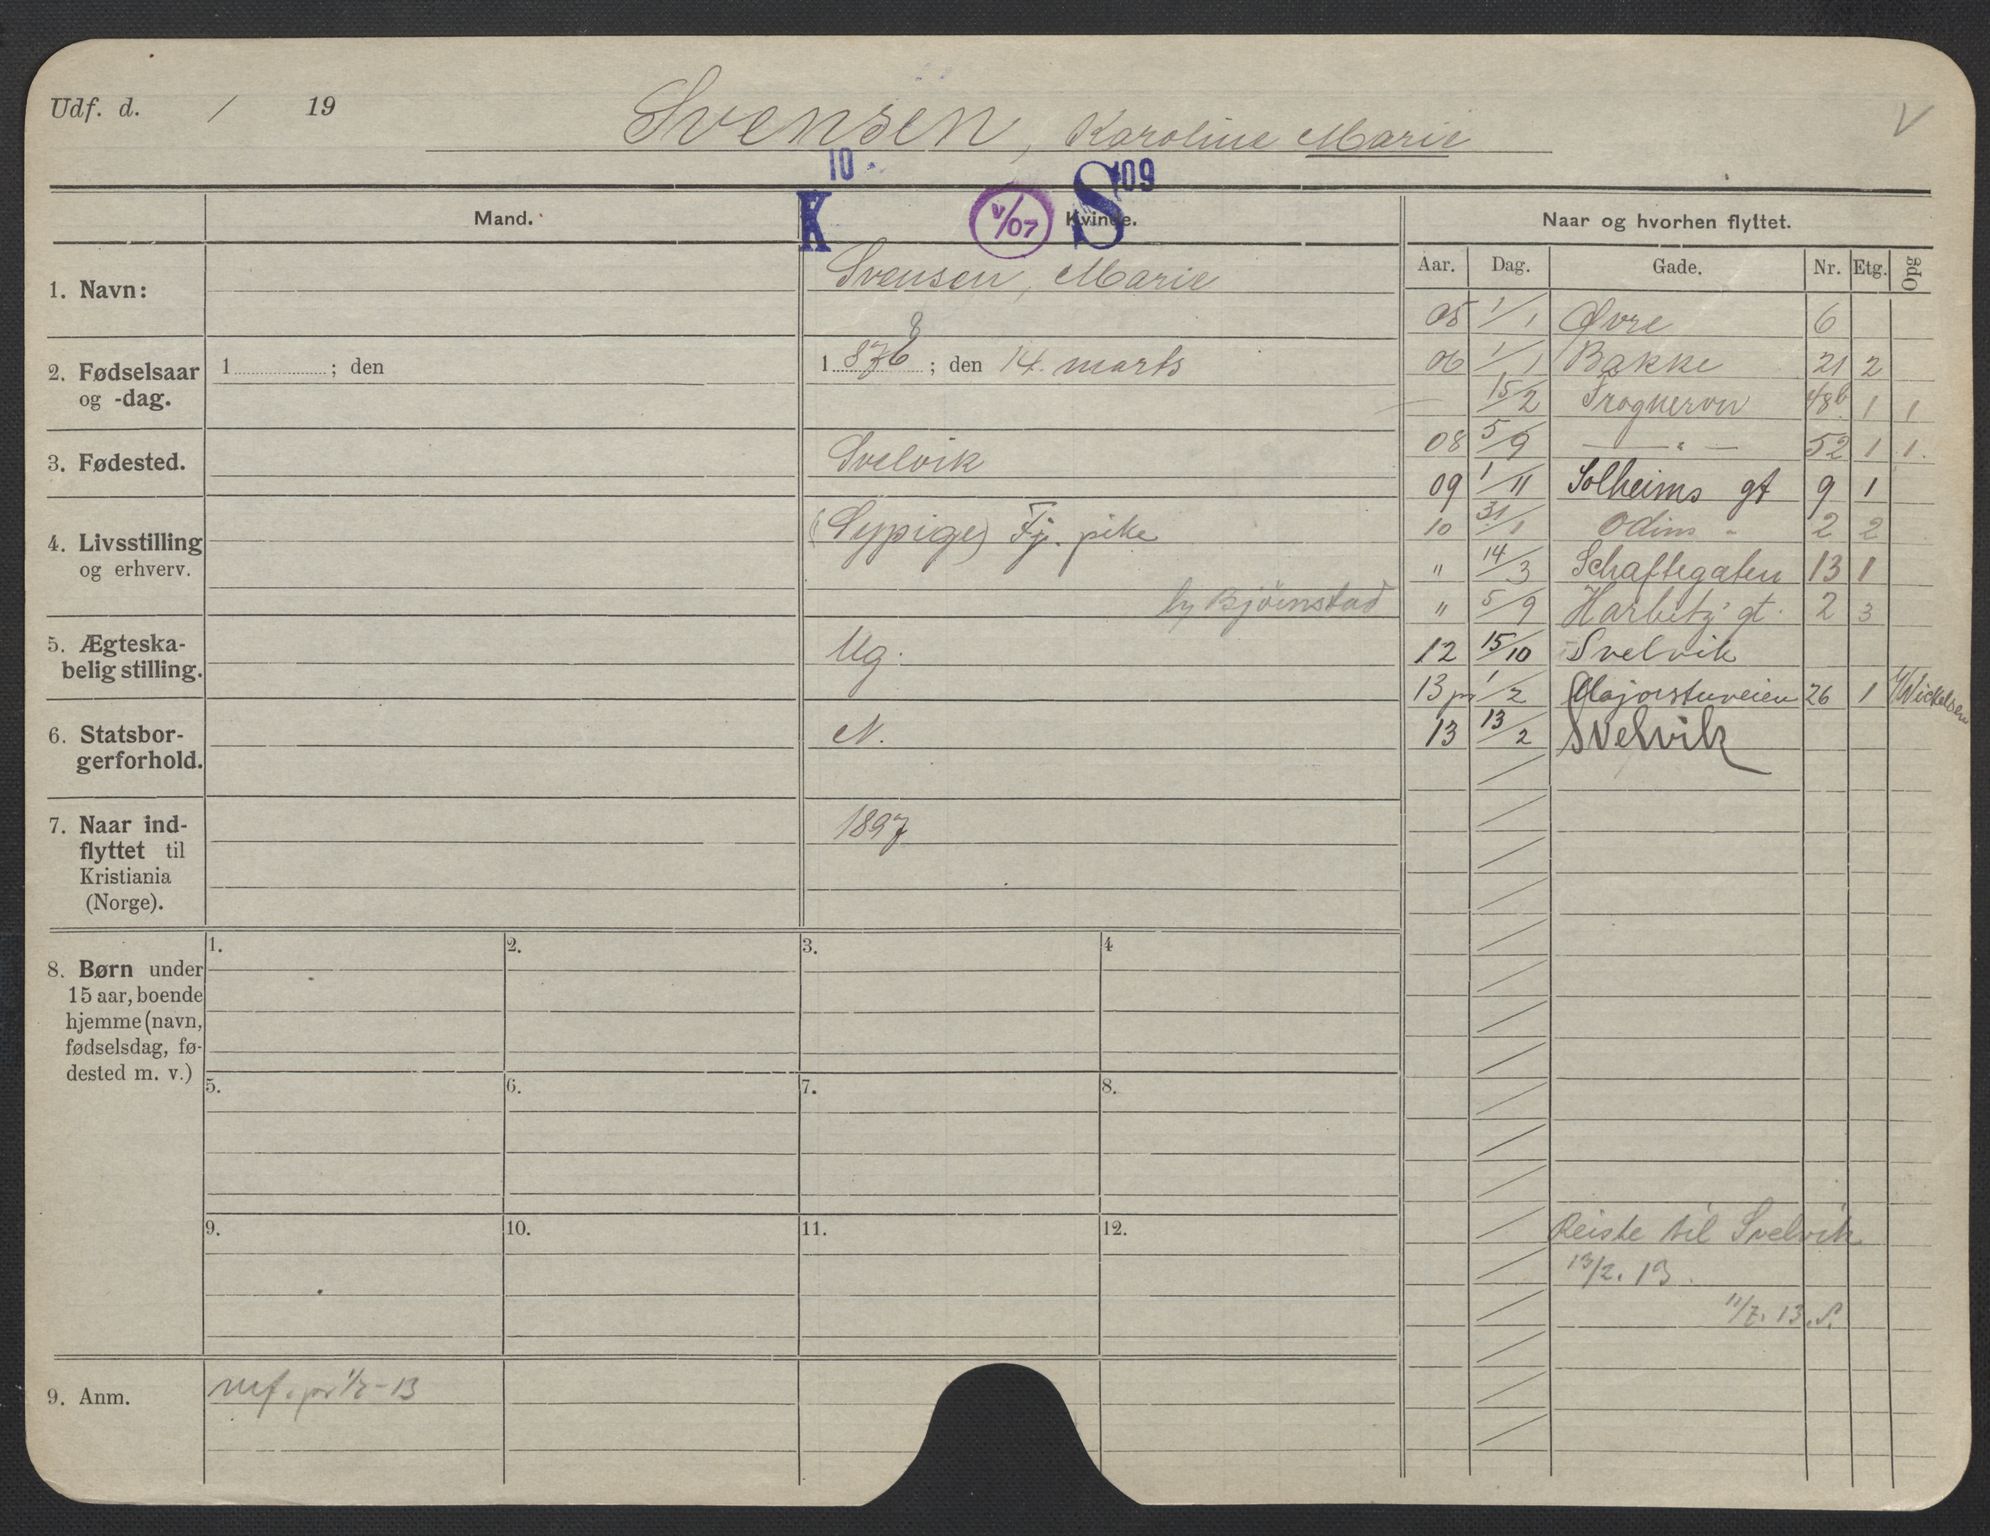 Udf. d. / 19
Svensen, Karoline Marie
V
10
K
V/07
S 109
Mand.
Kvinde.
Naar og hvorhen flyttet.
Aar. Dag. Gade. Nr. Etg. Opg
1. Navn:
Svensen, Marie
2. Fødselsaar
og -dag.
1 ; den
8
1 876 ; den 14. marts
3. Fødested.
Svelvik
4. Livsstilling
og erhverv.
(Sypige) Fj. pike
hj Bjørnstad
5. Ægteska-
belig stilling.
Ug.
6. Statsbor-
gerforhold.
N.
7. Naar ind-
flyttet til
Kristiania
(Norge).
1897
05 1/1 Øvre 6
06 1/1 Bakke 21 2
— 15/2 Frognervn 48b 1 1
08 5/9 — " — 52 1 1.
09 1/11 Solheims gt 9 1
10 31/1 Odins " 2 2
" 14/3 Schaftegaten 13 1
" 5/9 Harbitz' gt. 2 3
12 15/10 Svelvik
13 pr 1/2 Majorstuveien 26 1 h/Wickelsen
13 13/2 Svelvik
8. Børn under
15 aar, boende
hjemme (navn,
fødselsdag, fø-
dested m. v.)
1. 2. 3. 4
5. 6. 7. 8.
9. 10. 11. 12.
Reiste til Svelvik
13/2. 13.
11/7. 13. S.
9. Anm.